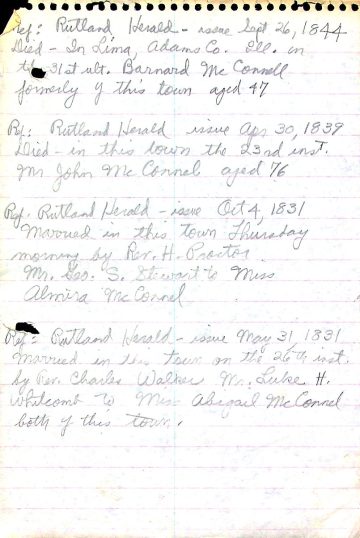 Ref: Rutland Herald - issue Sept 26, 1844
Died - In Lima, Adams Co. Ill. on
the 31st ult. Barnard McConnell
formerly of this town aged 47
Ref: Rutland Herald issue Apr 30, 1839
Died - in this town the 23rd inst.
Mr John McConnel aged 76
Ref. Rutland Herald - issue Oct 4, 1831
Married in this town Thursday
morning by Rev. H. Proctor
Mr. Geo. S. Stewart to Miss
Almira McConnel
Ref: Rutland Herald - issue May 31, 1831
Married in this town on the 26th inst.
by Rev. Charles Walker Mr. Luke H.
Whitcomb to Miss Abigail McConnel
both of this town.